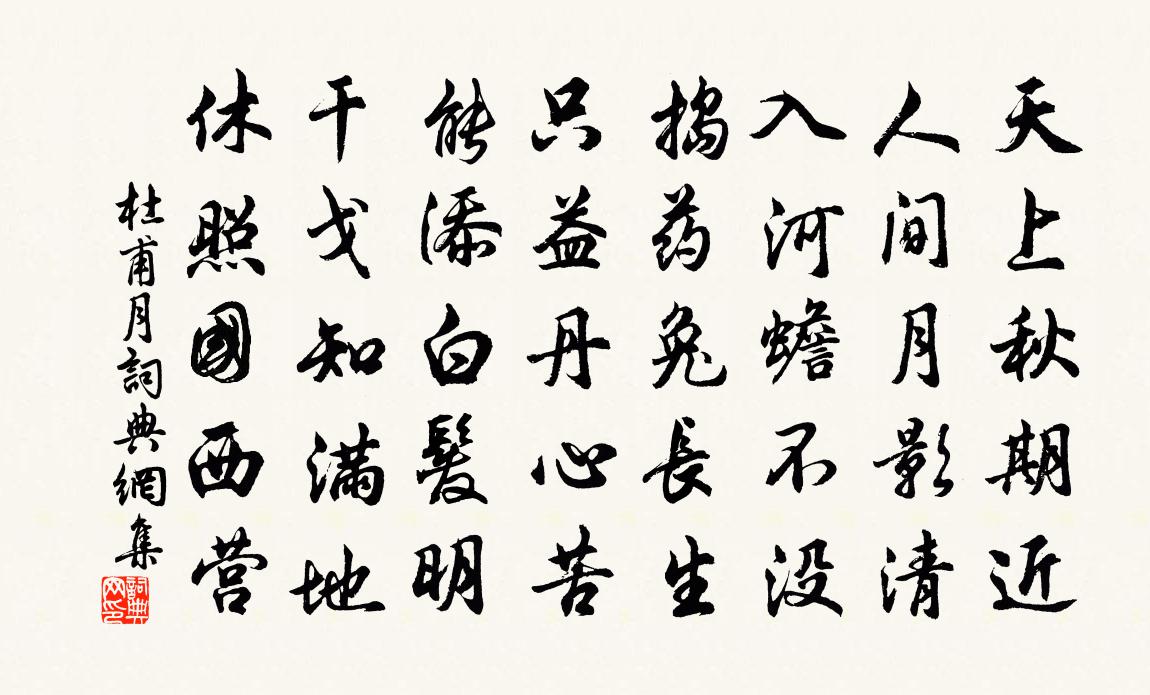 天上秋期近
人间月影清
入河蟾不没
捣药兔長生
只益丹心苦
能添白髮明
干戈知满地
休照國西营
杜甫月詞典網集
詞典網印